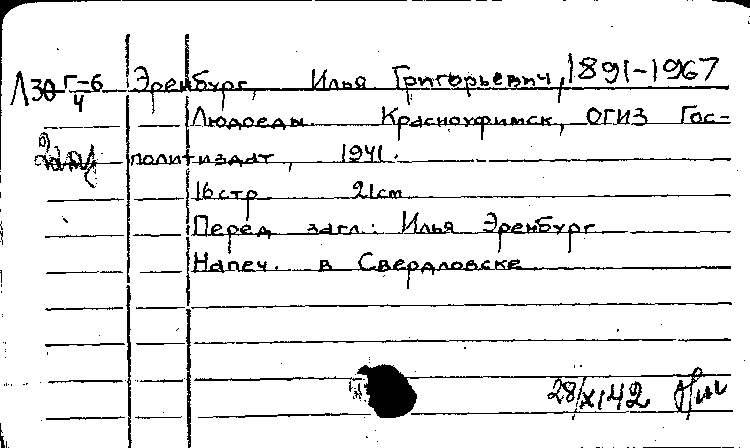 Л30 Г-6/4 Эренбург, Илья Григорьевич, 1891-1967
Людоеды. Красноуфимск, ОГИЗ Гос-
политиздат, 1941.
16 стр 21 cm
Перед загл.: Илья Эренбург
Напеч. в Свердловске
28/XI 42